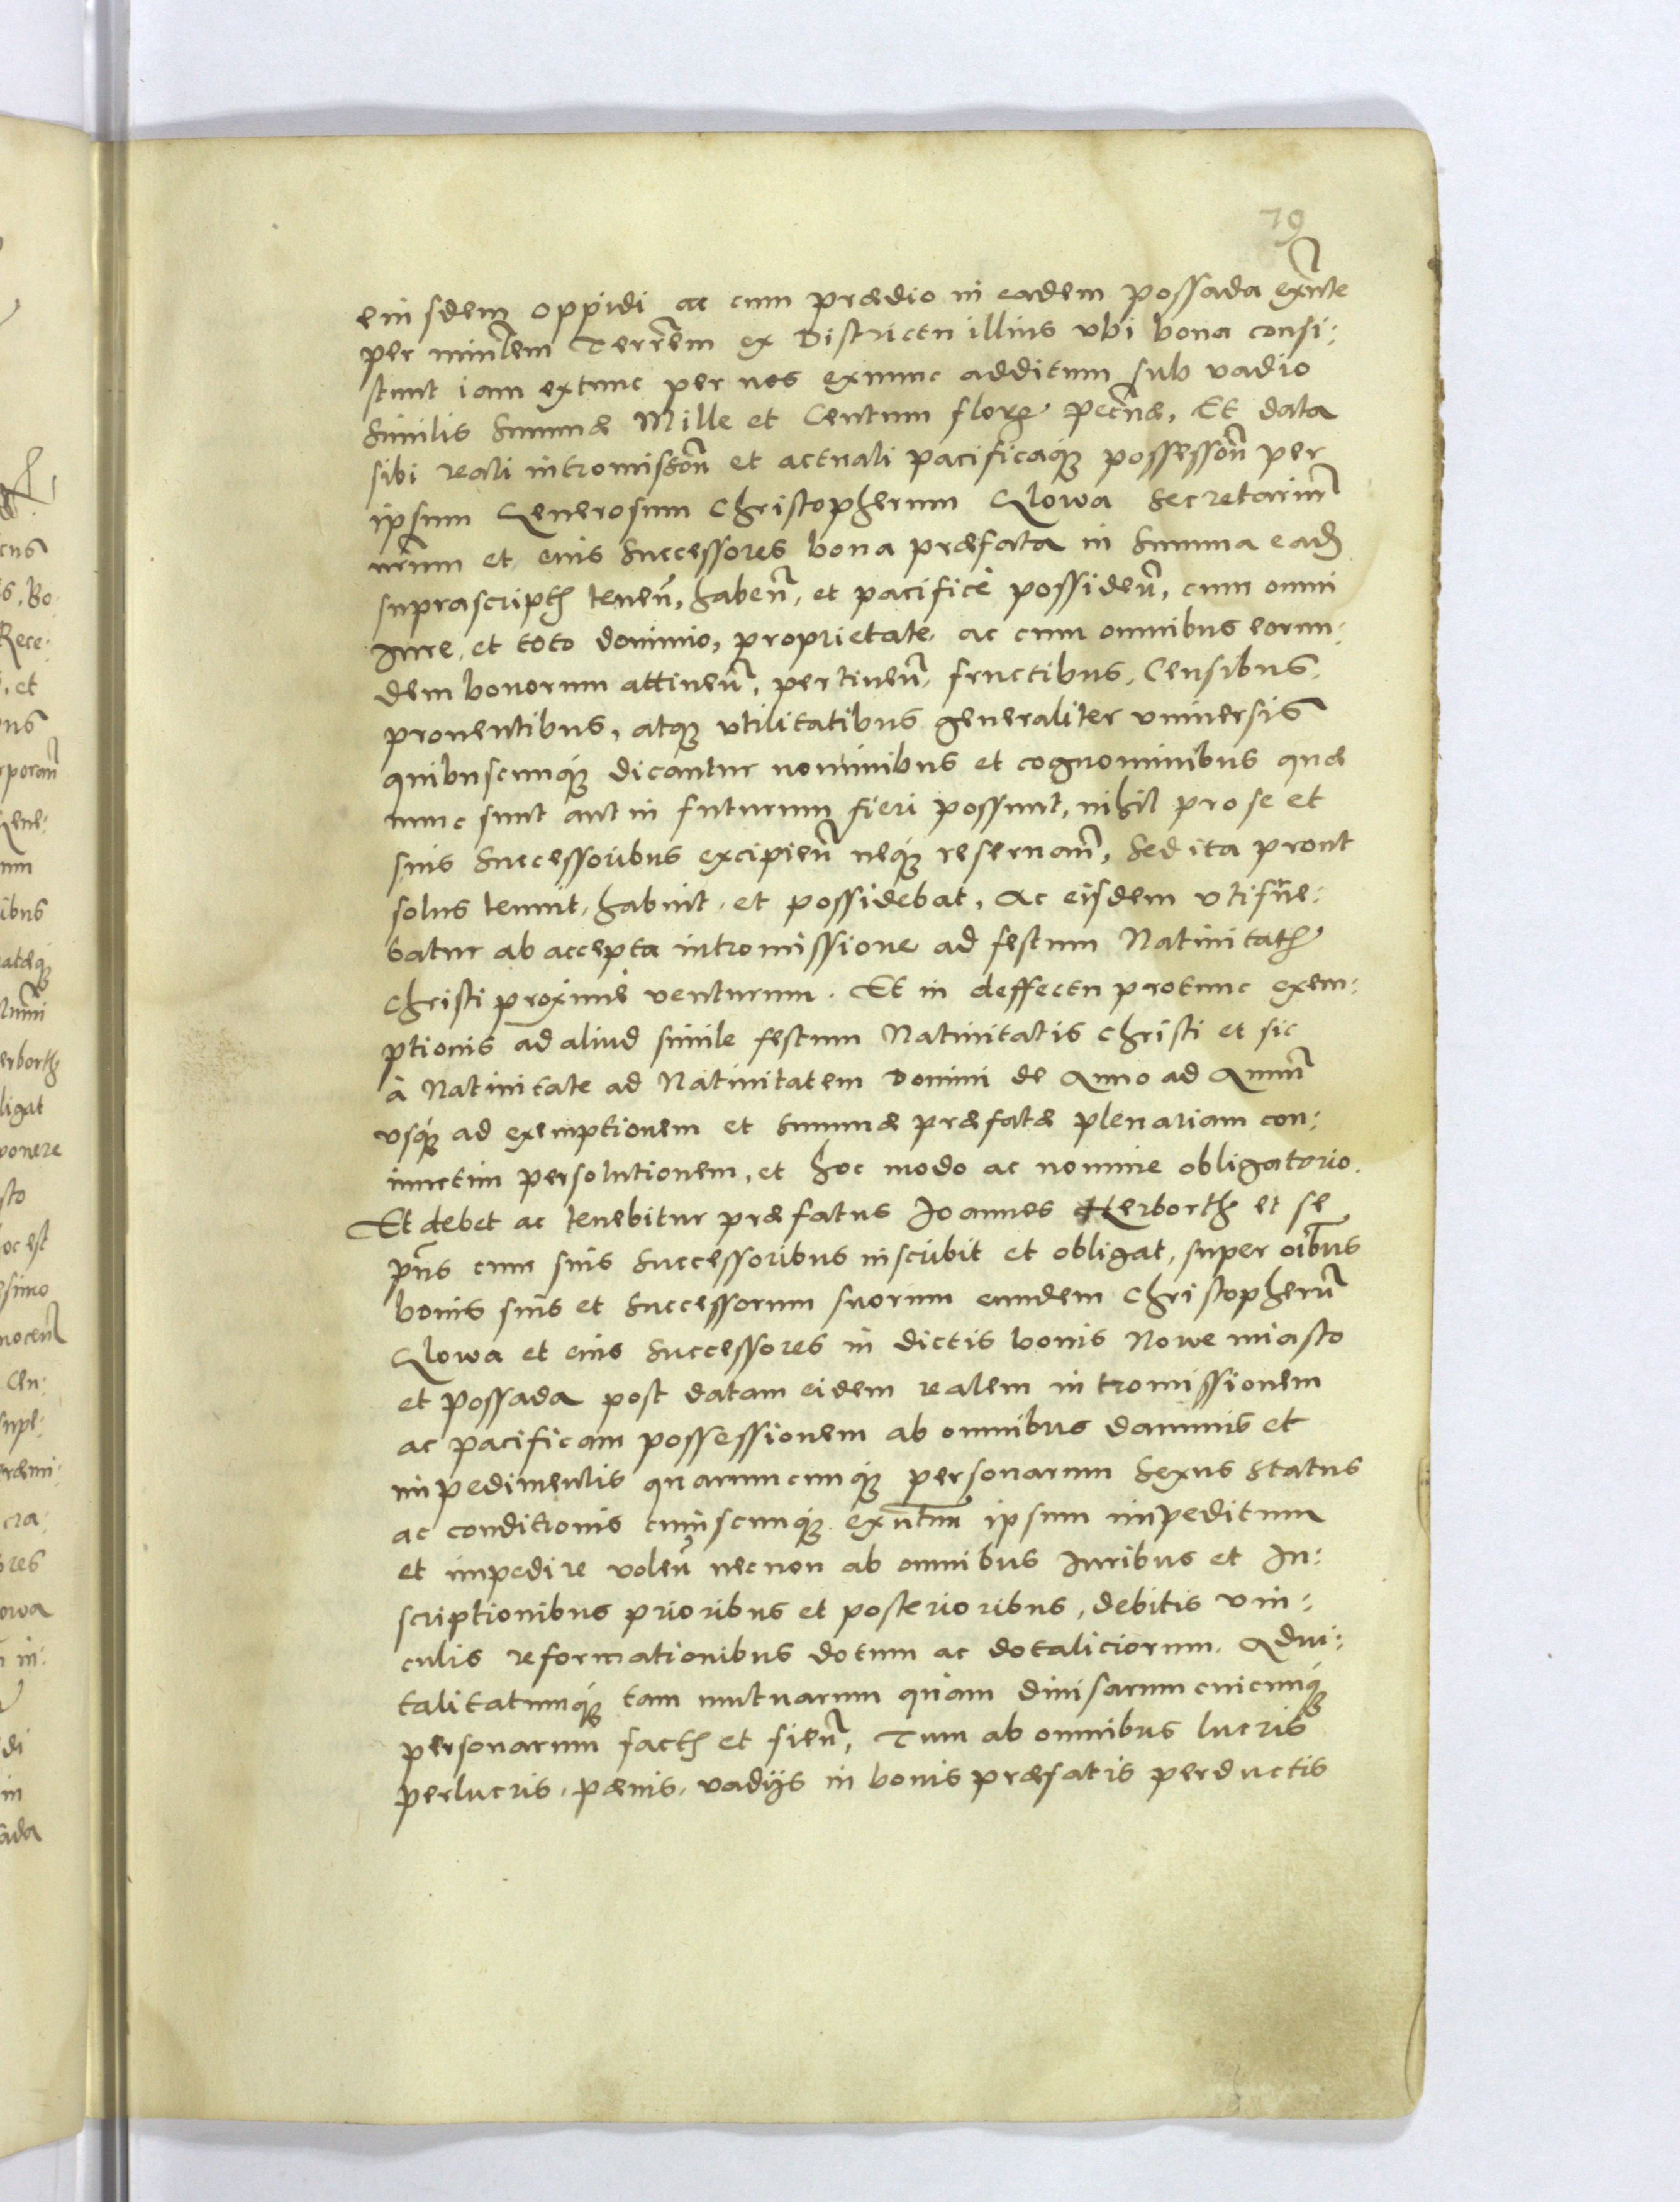 79
eiusdem oppidi ac cum prædio in eadem possada exnte
per minlem Terrem ex Districtu illius vbi bona consi:
stunt iam extunc per nos exnunc additum sub vadio
Similis Summæ Mille et Centum florꝝ pecunæ, Et data
sibi reali intromission et actuali pacificaqꝫ possession per
ipsum Generosum Christopherum Glowa Secretarium
nrum et eius Successores bona præfata in Summa eadē
suprascripta tenen, haben, et pacificè possiden, cum omni
Iure, et toto dominio, proprietate, ac cum omnibus eorun:
dem bonorum attinen, pertinen, fructibus, Censibus,
prouentibus, atqꝫ vtilitatibus generaliter vniuersis
quibuscunqꝫ dicantur nominibus et cognominibus quæ
nunc sunt aut in futurum fieri possunt, nihil pro se et
suis Successoribus excipien neqꝫ reseruan, Sed ita prout
solus tenuit, habuit, et possidebat, Ac eisdem vtifrue:
batur ab accepta intromissione ad festum Natiuitatis
Christi proximè venturum. Et in deffectu protunc exem:
ptionis ad aliud simile festum Natiuitatis Christi et sic
à Natiuitate ad Natiuitatem Domini de Anno ad Annum
vsqꝫ ad exemptionem et Summæ præfatæ plenariam con:
iunctim persolutionem, et hoc modo ac nomine obligatorio.
Et debet ac tenebitur præfatus Joannes Herborth et se
pns cum suis Successoribus inscribit et obligat, super oibus
bonis suis et Successorum suorum eundem Christopherū
Glowa et eius Successores in dictis bonis Nowe miasto
et Possada post datam eidem realem intromissionem
ac pacificam possessionem ab omnibus damnis et
impedimentis quarumcunqꝫ personarum Sexus Status
ac conditionis cuiuscunqꝫ exntum ipsum impeditum
et impedire volen necnon ab omnibus Iuribus et In:
scriptionibus prioribus et posterioribus, debitis vin:
culis reformationibus dotum ac dotaliciorum. Adui:
talitatumqꝫ tam mutuarum quàm diuisarum cuicunqꝫ
personarum factis et fien, Tum ab omnibus lucris
perlucris, pænis, vadijs in bonis præfatis perductis